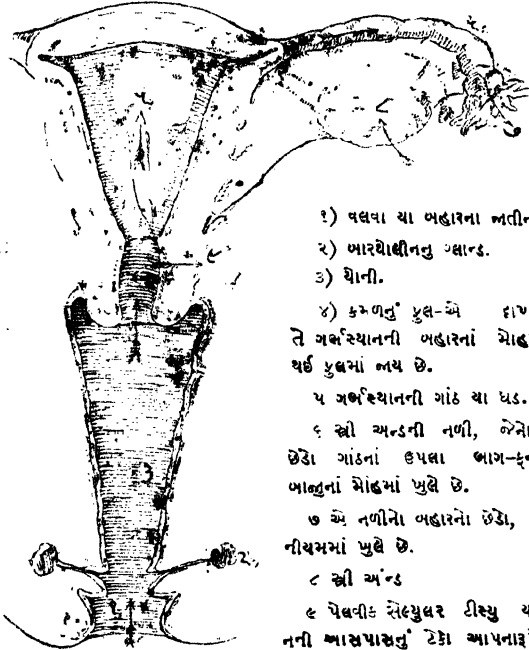 ૧) વલવા યા બહારના જાતીન
૨) બારથોલીનનુ ગ્લાન્ડ.
૩) યોની.
૪) કમળનું ફુલ-એ દાખ
તે ગર્ભસ્થાનની બહારનાં મોહ
થઈ ફુલમાં જાય છે.
૫ ગર્ભસ્થાનની ગાંઠ યા ધડ.
૬ સ્ત્રી અન્ડની નળી, જેનો
છેડો ગાંઠનાં ઉપલા ભાગ-ફન
બાજુનાં મોહમાં ખુલે છે.
૭ એ નળીનો બહારનો છેડો,
નીયમમાં ખુલે છે.
૮ સ્ત્રી અંન્ડ
૯ પેલવીક સેલ્યુલર ટીસ્યુ ય
નની આસપાસનું ટેકો આપનારૂં
૩
૨
૮